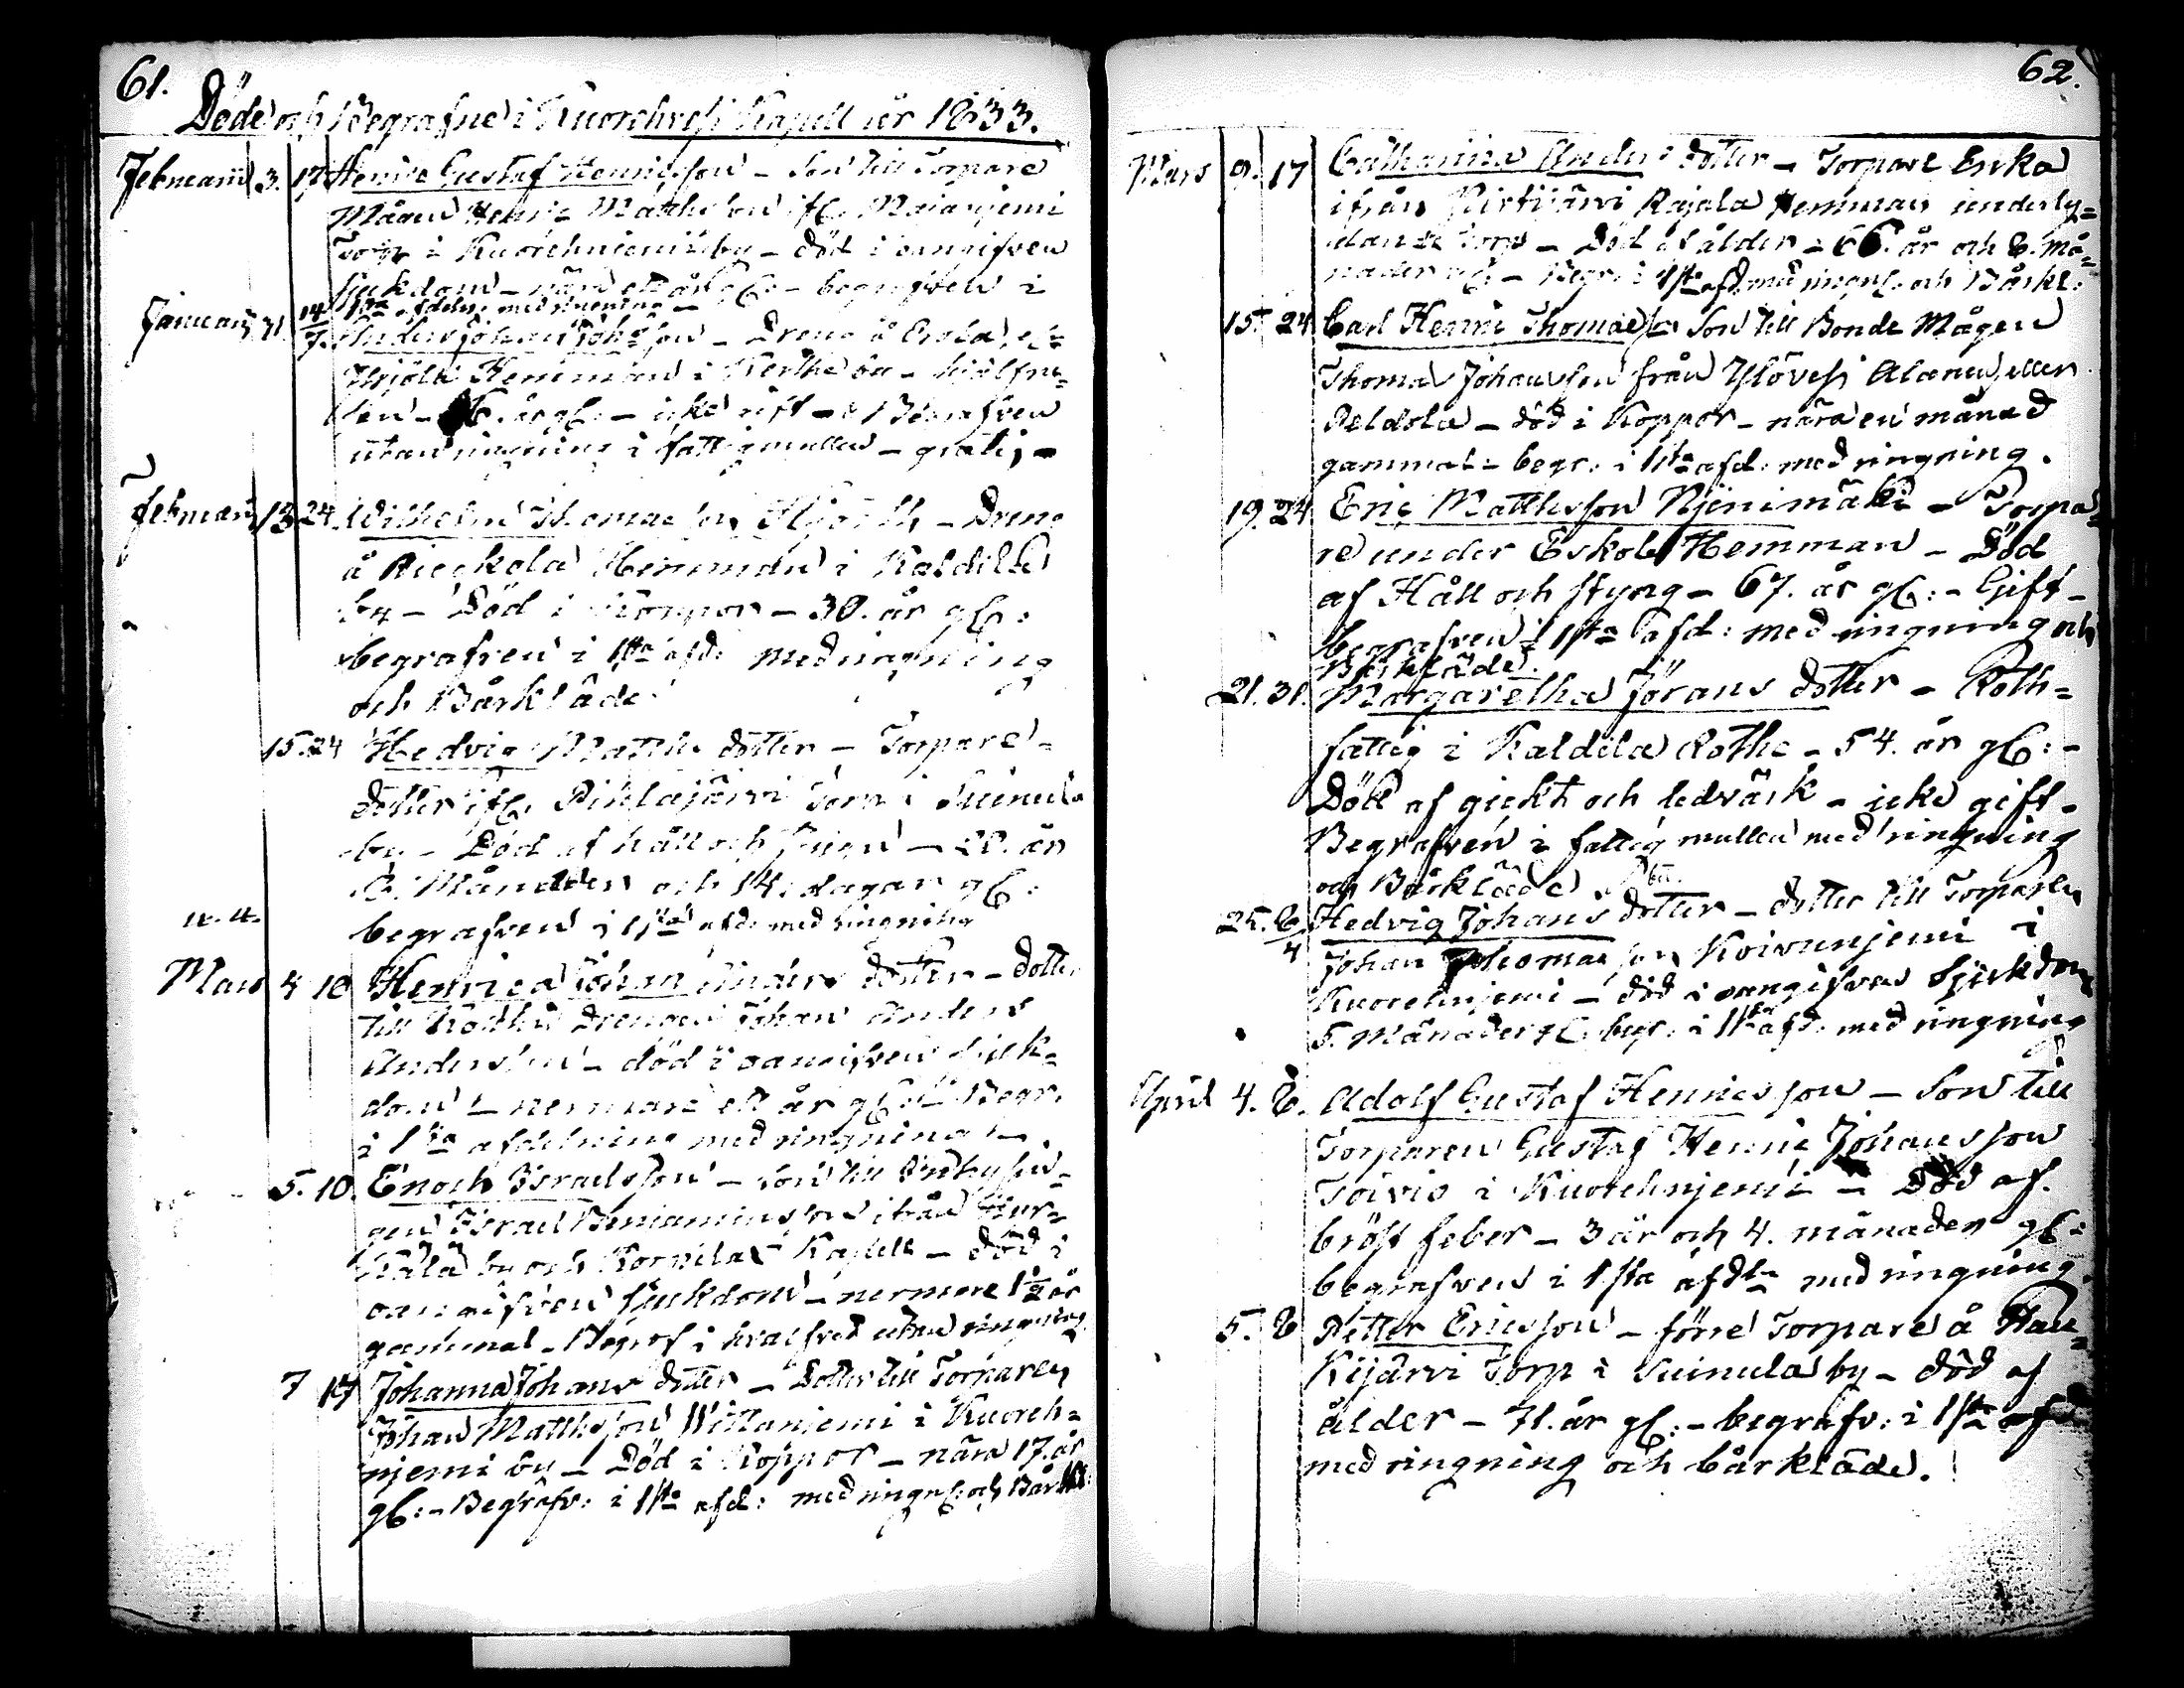 61.
Döde och Begrafne i Kuorehvesi Kapell år 1833.
Februarii 3. 17 Henric Gustaf Henricsson – Son till Torpare
Mågen Henric Matthsson ifr. Majaniemi
Torp i Kuorehniemi by – död i oangifven
sjukdom – nära ett år gl: – begrafven i
1sta afdeln: med ringning –
Januarii 31. 14/7. Anders Johan Johsson – Dreng å Erola
Hemman i by –
år gl: – icke gift – Begrafven
utan ringning i fattigmullen – gratis –
Februarii 13 24. Wilhelm Thomasson – Dreng
å Hemman i Kaldila
by – Död i Koppor – 30. år gl:
begrafven i 1sta afd: med ringning
och Bårkläde
15. 24 Hedvig Matths dotter – Torpare =
dotter ifr. Pihlajärvi Torp i Suinula
by – Död af håll och styng – 22. år
Månader och 14. dagar gl:
begrafven i 1sta afd: med ringning
Mars 4 10 Henrica Johan Anders dotter – dotter
till drengen Johan Anders
Andersson – död i oangifven sjuk=
dom – nermare ett år gl: – Begr.
i 1sta afdelning med ringning –
5. 10. Enoch Israelsson – son till Inhysin=
gen Israel Benjaminsson ifrån
by och Korpilax Kapell – död i
oangifven sjukdom – nermare 1½ år
gammal – Begrof i hvalfved utan ringning
7 17 Johanna Johans dotter – Dotter till Torparen
Johan Matthsson Wittaniemi i Kuoreh=
njemi by – Död i Koppor – nära 17. år
gl: – Begrafv: i 1sta afd: med ringn: och Bårkl:
62.
Mars 9. 17 Catharina Anders dotter – Torpare Enka
ifrån Kirtijärvi Rajala Hemman underly=
dande Torp – Död af ålder – 66. år och 8. må=
nader gl: – Begr: i 1sta afd: med ringn: och Bårkl:
15. 24 Carl Henric Thomasson Son till Bonde Mågen
Thomas Johansson från Ylövesi Alanen eller
Peldola – död i Koppor – nära en månad
gammal – begr: i 1sta afd: med ringning.
19. 24 Eric Matthsson Njenimäki – Torpa=
re under Eskola Hemman – Död
af Håll och styng – 67. år gl: – Gift –
begrafven i 1sta afd: med ringning och
Bårkläde.
21. 31. Margaretha Jörans dotter – Roth=
fattig i Kaldila Rothe – 54. år gl: –
Död af gickt och ledvärk – icke gift –
Begrafven i fattig mullen med ringning
och Bårkläde
25. 8/4 Hedvig Johans dotter – dotter till Torparen
Johan Thomasson Koivunjemi i
Kuorehnjemi – död i oangifven sjukdom
5. Månader gl: begr: i 1sta afd: med ringning
April 4. 8. Adolf Gustaf Henricsson – Son till
Torparen Gustaf Henric Johansson
Toivio i Kuorehnjemi – Död af
bröst feber – 3 år och 4. månader gl:
begrafven i 1sta afdl: med ringning.
5. 8 Petter Ericsson – förre Torpare å Hau=
kijärvi Torp i Suinula by – död af
ålder – 71. år gl: – begrafv: i 1sta afd
med ringning och bårkläde.